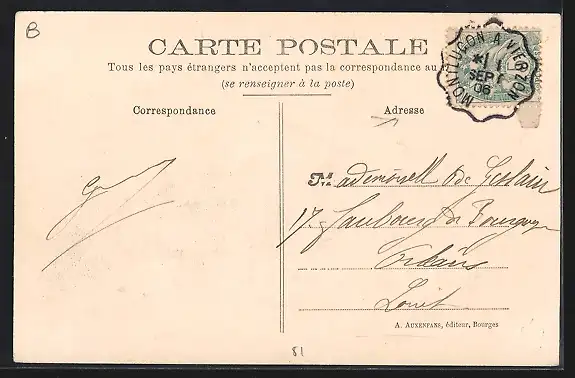 B
CARTE POSTALE
Tous les pays étrangers n'acceptent pas la correspondance au
(se renseigner à la poste)
MONTLUÇON A VIERZON
11
SEPT
06
Correspondance
Adresse
Mademoiselle de Geslain
17. Faubourg de Bourgogne
Orléans
Loiret
A. AUXENFANS, éditeur, Bourges
81